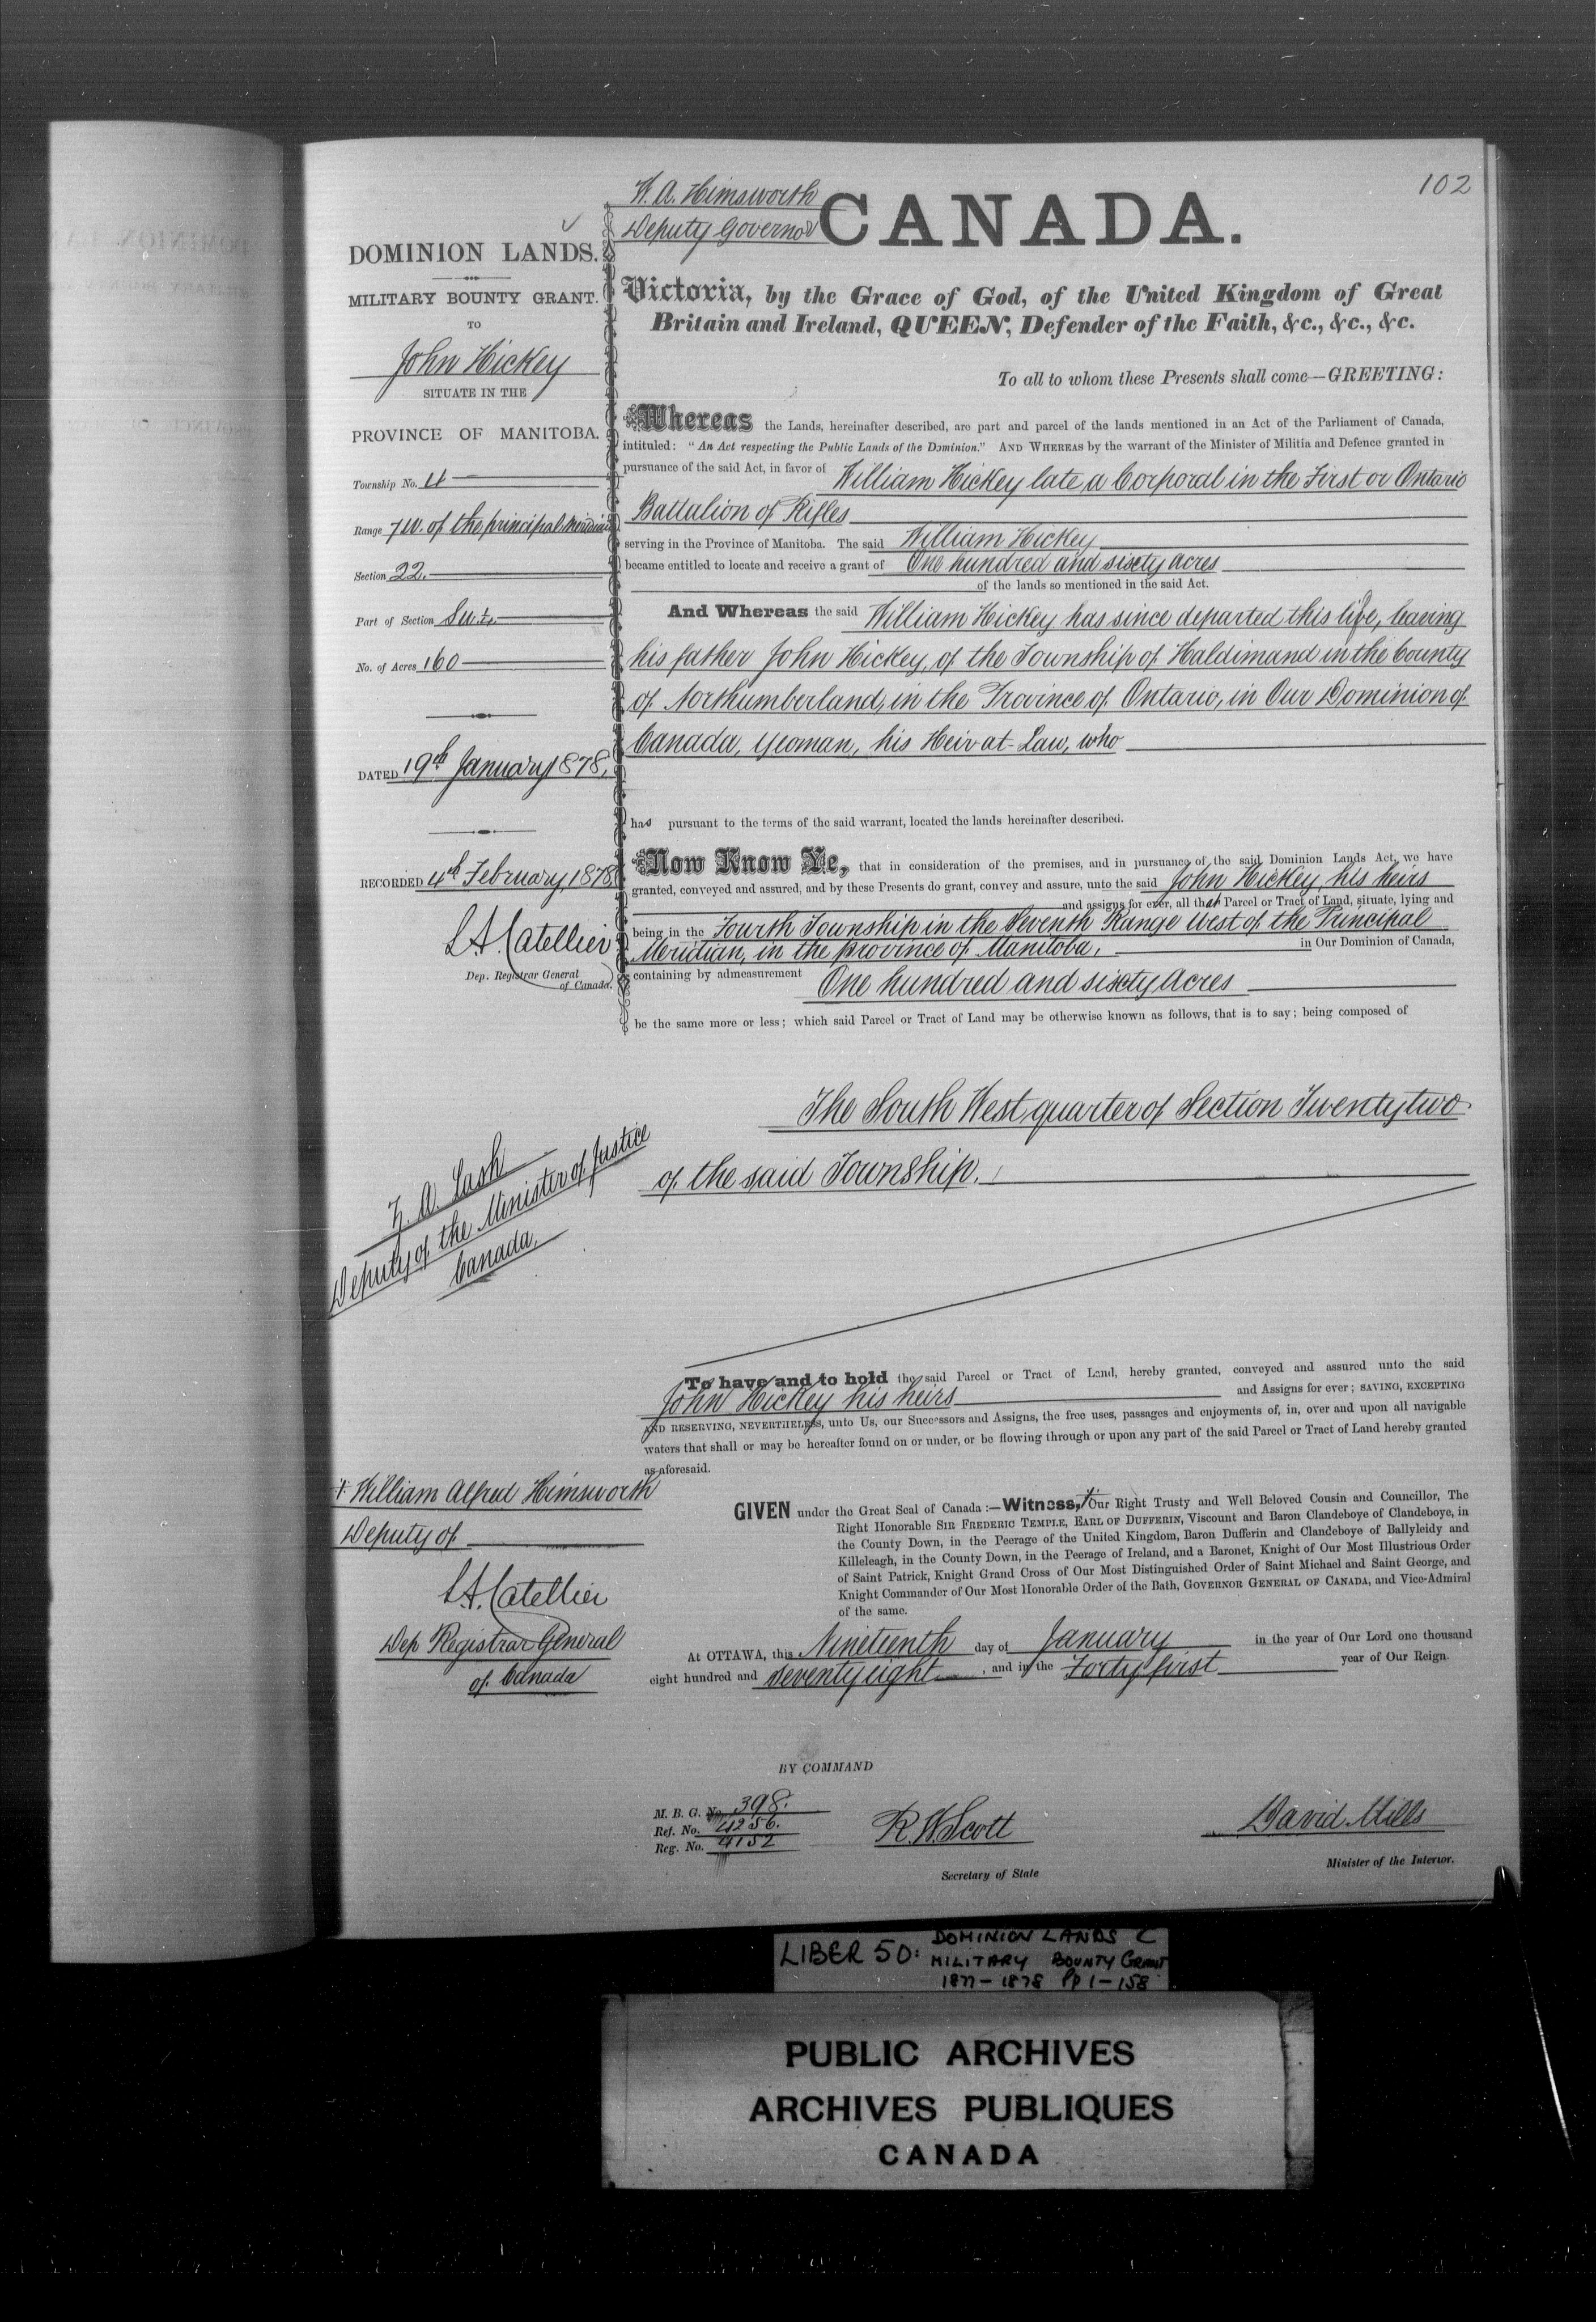 102
W. A. Himsworth
Deputy Governor
CANADA.
DOMINION LANDS.
MILITARY BOUNTY GRANT.
TO
John Hickey
SITUATE IN THE
PROVINCE OF MANITOBA.
Township No. 4
Range 7 W. of the principal Meridian
Section 22.
Part of Section S.W. ¼.
No. of Acres 160
DATED 19th January 1878,
RECORDED 4th February 1878
L.A. Catellier
Dep. Registrar General
of Canada.
Victoria, by the Grace of God, of the United Kingdom of Great
Britain and Ireland, QUEEN, Defender of the Faith, &c., &c., &c.
To all to whom these Presents shall come—GREETING:
Whereas the Lands, hereinafter described, are part and parcel of the lands mentioned in an Act of the Parliament of Canada,
intituled: "An Act respecting the Public Lands of the Dominion." AND WHEREAS by the warrant of the Minister of Militia and Defence granted in
pursuance of the said Act, in favor of William Hickey late a Corporal in the First or Ontario
Battalion of Rifles
serving in the Province of Manitoba. The said William Hickey
became entitled to locate and receive a grant of One hundred and sixty acres
of the lands so mentioned in the said Act.
And Whereas the said William Hickey has since departed this life, leaving
his father John Hickey, of the Township of Haldimand in the County
of Northumberland, in the Province of Ontario, in Our Dominion of
Canada, Yeoman, his Heir-at-Law, who
has pursuant to the terms of the said warrant, located the lands hereinafter described.
Now Know Ye, that in consideration of the premises, and in pursuance of the said Dominion Lands Act, we have
granted, conveyed and assured, and by these Presents do grant, convey and assure, unto the said John Hickey, his heirs
and assigns for ever, all that Parcel or Tract of Land, situate, lying and
being in the Fourth Township in the Seventh Range West of the Principal
Meridian, in the province of Manitoba, in Our Dominion of Canada,
containing by admeasurement One hundred and sixty acres
be the same more or less; which said Parcel or Tract of Land may be otherwise known as follows, that is to say; being composed of
The South West quarter of Section Twenty two
of the said Township.
Z. A. Lash
Deputy of the Minister of Justice
Canada.
To have and to hold the said Parcel or Tract of Land, hereby granted, conveyed and assured unto the said
John Hickey his heirs and Assigns for ever; SAVING, EXCEPTING
AND RESERVING, NEVERTHELESS, unto Us, our Successors and Assigns, the free uses, passages and enjoyments of, in, over and upon all navigable
waters that shall or may be hereafter found on or under, or be flowing through or upon any part of the said Parcel or Tract of Land hereby granted
as aforesaid.
+ William Alfred Himsworth
Deputy of
L.A. Catellier
Dep Registrar General
of Canada
GIVEN under the Great Seal of Canada:—Witness, + Our Right Trusty and Well Beloved Cousin and Councillor, The
Right Honorable SIR FREDERIC TEMPLE, EARL OF DUFFERIN, Viscount and Baron Clandeboye of Clandeboye, in
the County Down, in the Peerage of the United Kingdom, Baron Dufferin and Clandeboye of Ballyleidy and
Killeleagh, in the County Down, in the Peerage of Ireland, and a Baronet, Knight of Our Most Illustrious Order
of Saint Patrick, Knight Grand Cross of Our Most Distinguished Order of Saint Michael and Saint George, and
Knight Commander of Our Most Honorable Order of the Bath, GOVERNOR GENERAL OF CANADA, and Vice-Admiral
of the same.
At OTTAWA, this Nineteenth day of January in the year of Our Lord one thousand
eight hundred and Seventy eight, and in the Forty first year of Our Reign.
BY COMMAND
M. B. G. No. 398.
Ref. No. 4256.
Reg. No. 4152
R W Scott
Secretary of State
David Mills
Minister of the Interior.
LIBER 50: DOMINION LANDS C
MILITARY BOUNTY GRANT
1877-1878 Pp 1-158
PUBLIC ARCHIVES
ARCHIVES PUBLIQUES
CANADA